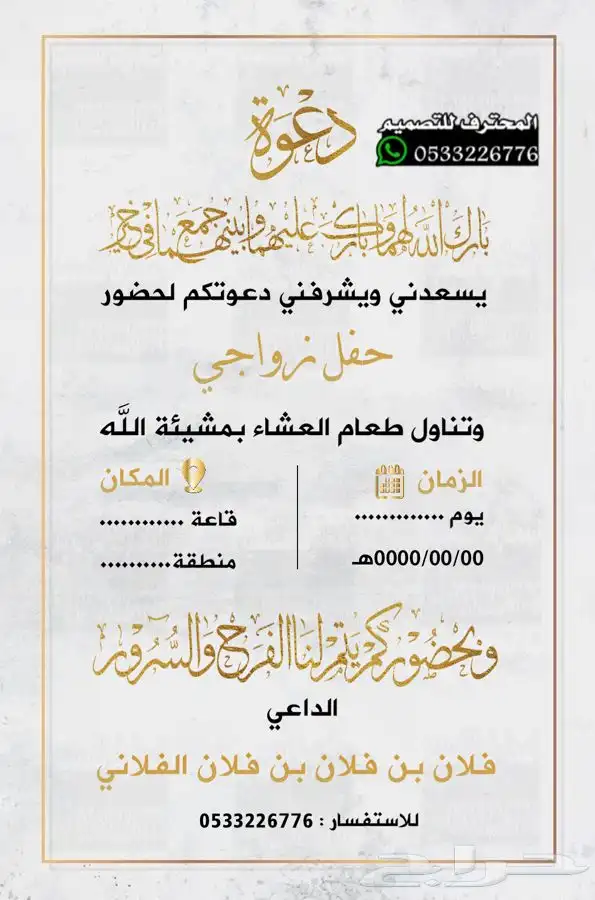 دعوة
المحترف للتصميم
0533226776
بارك الله لهما وبارك عليهما وجمع بينهما في خير
يسعدني ويشرفني دعوتكم لحضور
حفل زواجي
وتناول طعام العشاء بمشيئة الله
الزمان
يوم .............
00/00/0000هـ
المكان
قاعة ............
منطقة...........
وبحضوركم يتم لنا الفرح والسرور
الداعي
فلان بن فلان بن فلان الفلاني
للاستفسار : 0533226776
حراج